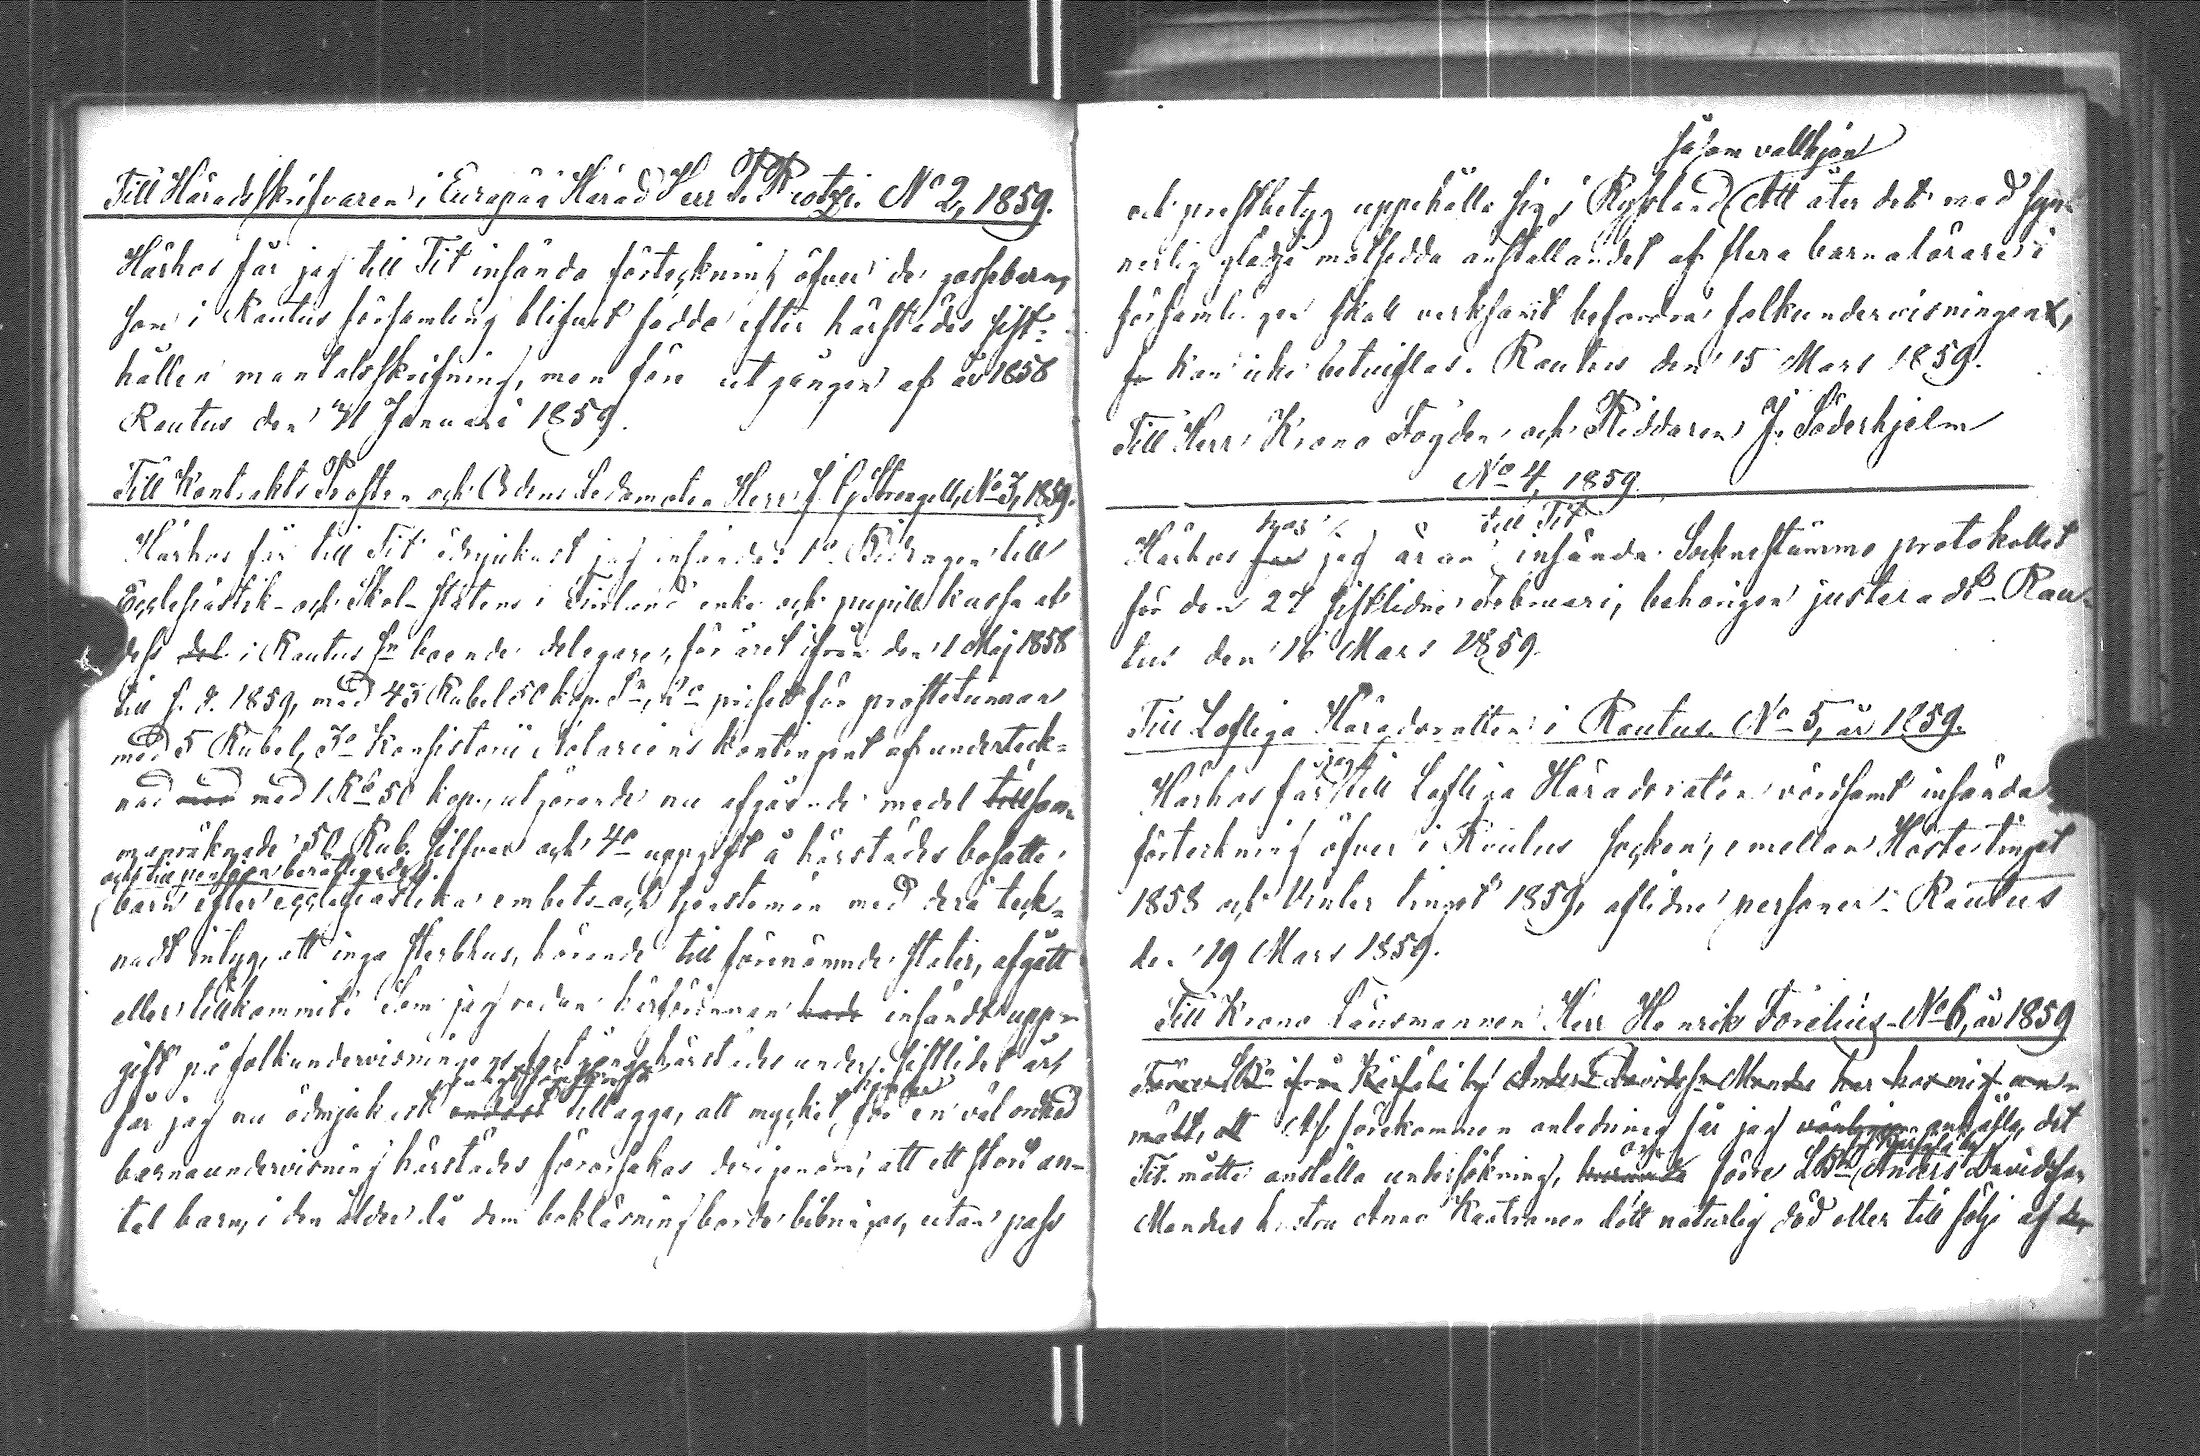 Till Häradsskrifvaren i Europää Härad Herr Protzi. No 2, 1859.
Härhos får jag till Tit insända förteckning öfver de gossebarn,
som i Rautus församling blifvit födda efter härstädes sist-
hållen mantalsskrifning, men före utgången af år 1858
Rautus den 31 Januari 1859.
Till Kontrakts Prosten och Ordens Ledamoten Herr J. G. Strengell, No 3, 1859.
Härhos får till Tit ödmjukast jag insända: 1o Bidragen till
Ecclesiastik- och Skol-Statens i Finland enke och pupillkassa af
dess del i Rautus Sn boende delegare, för året ifrån den 1 Maj 1858
till s. d. 1859, med 43 Rubel 50 kop. Sr, 2o priset för prosttunnan
med 5 Rubel, 3o Konsistorii Notariens kontingent af underteck-
nad med med 1 Rb 50 kop., utgörande nu afgående medel tillsam-
manräknade 50 Rub. silfver och 4o uppgift å härstädes bosatte
och till pension berättigade
barn efter ecclesiastika embets- och tjenstemän med derå teck-
nadt intyg, att inga sterbhus, hörande till förenämnde stater, afgått
eller tillkommit. Som jag redan härförinnan hade insändt upp-
gift på folkundervisningens fortgång härstädes under sistlidet år,
får jag nu ödmjukast endast tillägga, att mycket för en väl ordnad
barnaundervisning härstädes förorsakas derigenom, att ett stort an-
tal barn, i den ålder då dem bokläsning borde bibringas, utan pass
såsom vallhjon
och prestbetyg uppehålla sig i Ryssland. Att åter det med syn-
nerlig glädje motsedda anställandet af flera barnalärare i
församlingen skall verksamt befordra folkundervisningen,
så kan icke betviflas. Rautus den 15 Mars 1859.
Till Herr Krono Fogden och Riddaren J. Söderhjelm
No 4, 1859.
till Tit
Härhos får jag äran insända Sockenstämmo protokollet
för den 27 sistlidne Februari, behörigen justeradt. Rau-
tus den 16 Mars 1859.
Till Lofliga Häradsrätten i Rautus. No 5, år 1859.
jag
Härhos får till Lofliga Häradsrätten vördsamt insända
förteckning öfver i Rautus socken, emellan Höstetinget
1858 och Vinter tinget 1859, aflidne personer. Rautus
den 19 Mars 1859.
Till Krono Länsmannen Herr Henrik Forelius No 6, år 1859
by Anders Davidsson Mandes har hos mig an-
mält, att Af förekommen anledning får jag vänligen anhålla, det
Tit. måtte anställa undersökning, förre Anders Davidsson
Mandes hustru Anna Kautranen dött naturlig död eller till följe af